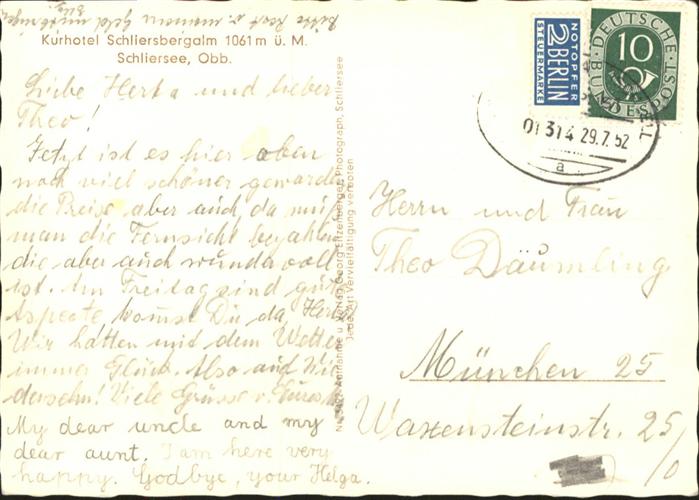 Bitte Post u. meinen Geld mitbringen
Kurhotel Schliersbergalm 1061 m ü. M.
Schliersee, Obb.
Liebe Herta und lieber
Theo!
Jetzt ist es hier oben
noch viel schöner geworden
die Preise aber auch, da muß
man die Fernsicht bezahlen
die aber auch wundervoll
ist. Am Freitag sind gute
Aspecte kommst Du da, Herta
Wir hatten mit dem Wetter
immer Glück. Also auf Wie
dersehn! Viele Grüsse v. Eurer
My dear uncle and my
dear aunt. I am here very
happy. Goodbye, your Helga.
Aufnahme u. Verlag Georg Eitzenberger, Photograph, Schliersee
Jede Art Vervielfältigung verboten
NOTOPFER
2 BERLIN
STEUERMARKE
DEUTSCHE
10
BUNDESPOST
01314 29.7.52
a
Herrn und Frau
Theo Däumling
München 25
Waxensteinstr. 25
/0